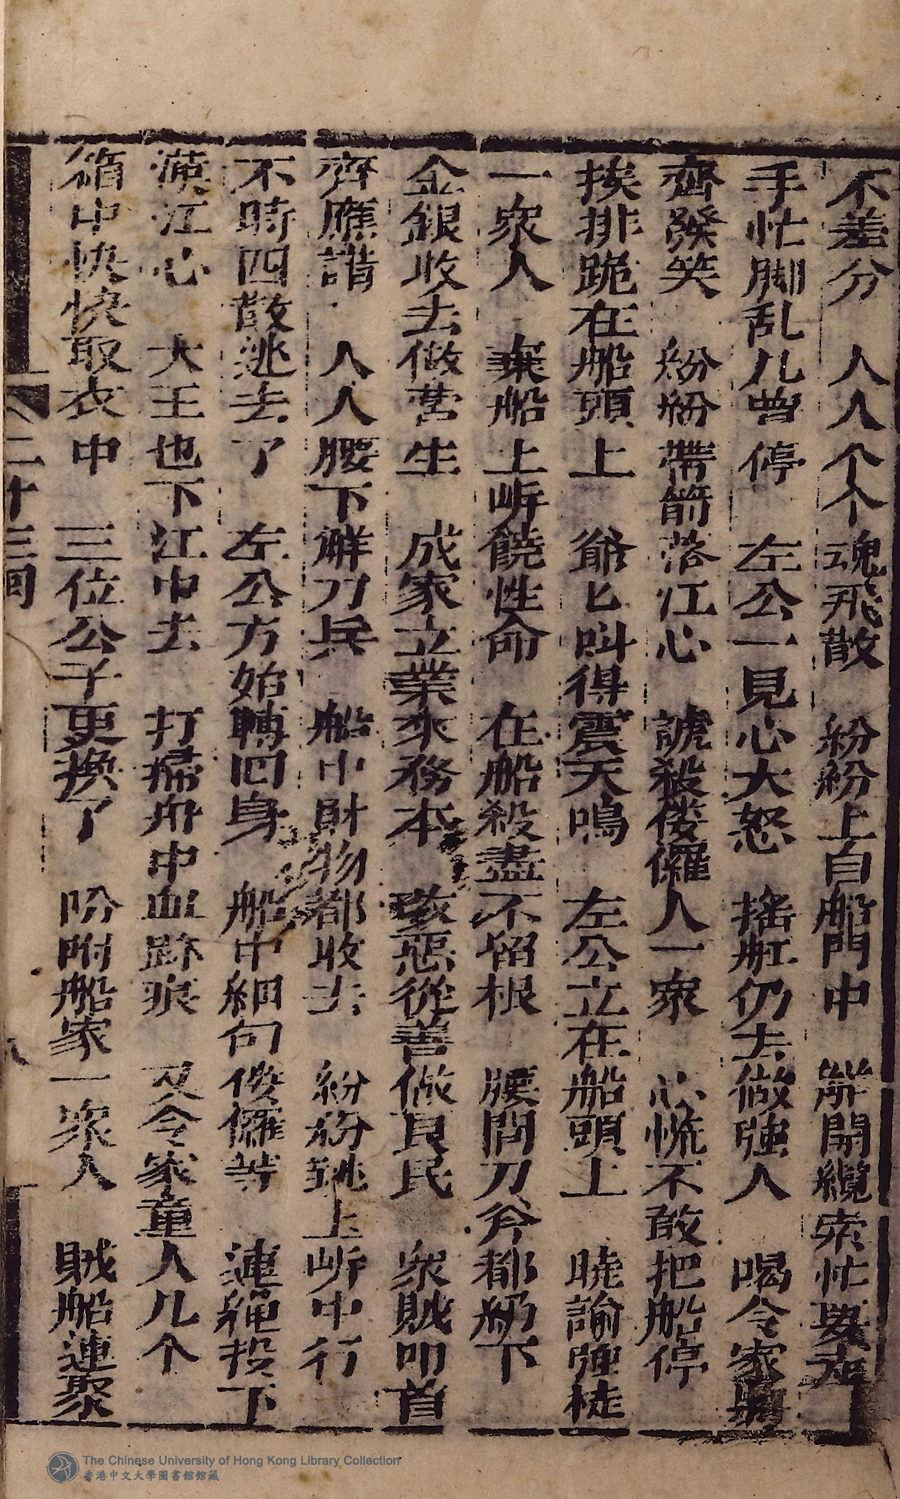 不差分　人人个个魂飛散　紛紛上自船門中　解開纜索忙要走
手忙脚乱几曽停　左公一見心大怒　搖舡仍去做強人　喝令家
齊發笑　紛紛帶箭落江心　諕殺僂儸人一衆　心慌不敢把船停
挨排跪在船頭上　爺匕叫得震天鳴　左公立在船頭上　曉諭強徒
一衆人　棄船上岍饒性命　在船殺盡不留根　腰間刀斧都紉下
金銀收去做营生　成家立業來務本　改惡從善做良民　衆賊叩首
齊應諧　人人腰下解刀兵　船中財物都收去　紛紛跳上岍中行
不時四散逃去了　左公方始轉囬身　船中綑句僂儸等　連繩投下
滿江心　大王也下江中去　打掃舟中血跡痕　又令家童人几个
箱中快快取衣中　三位公子更換了　吩咐船家一衆人　賊船連聚
二十三囘
The Chinese University of Hong Kong Library Collection
香港中文大學圖書館館藏